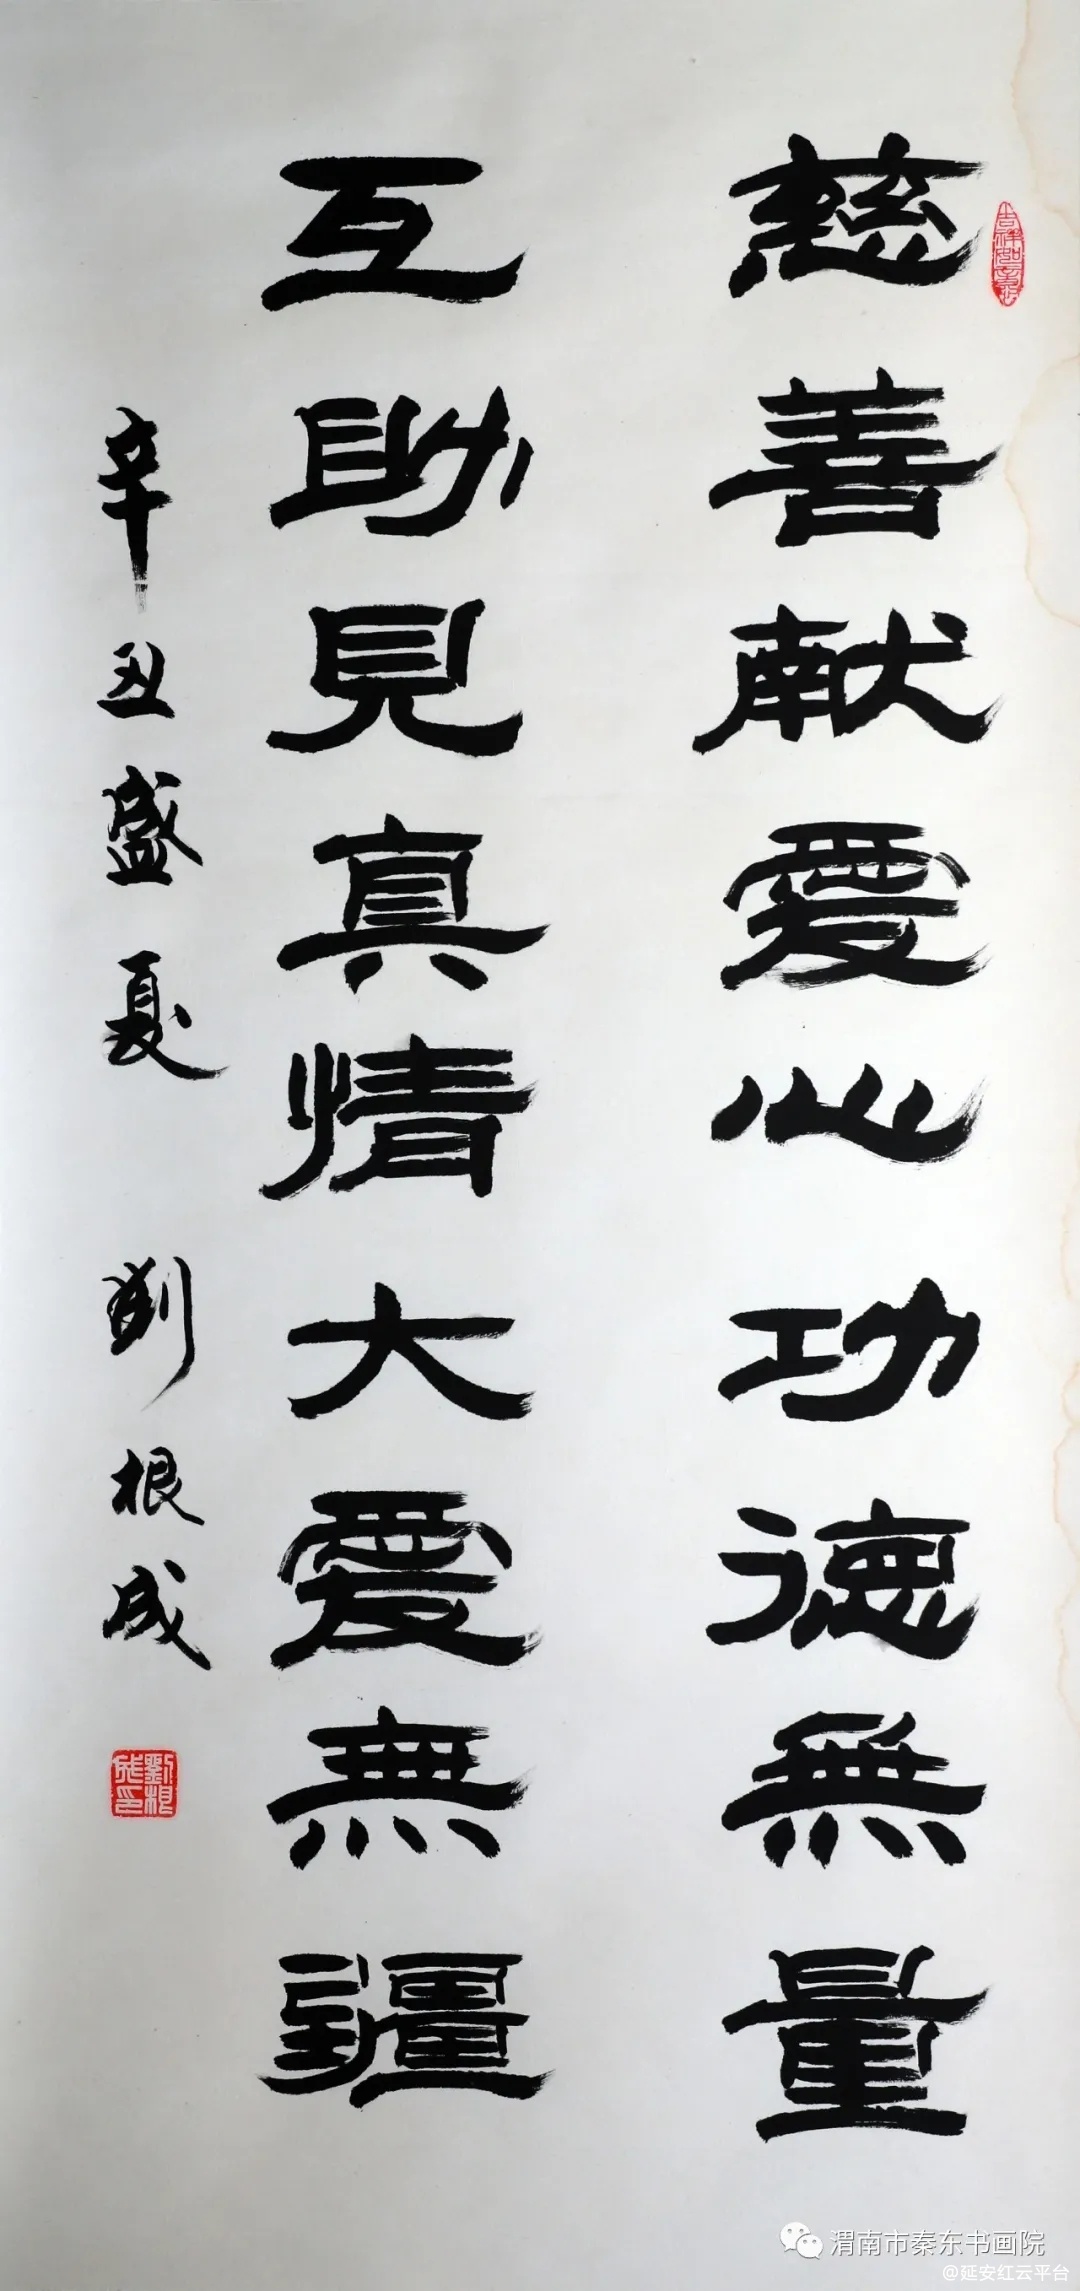 慈善献爱心功德無量
互助見真情大爱無疆
辛丑盛夏 劉根成
吉祥如意
劉根成印
渭南市秦东书画院
@延安红云平台